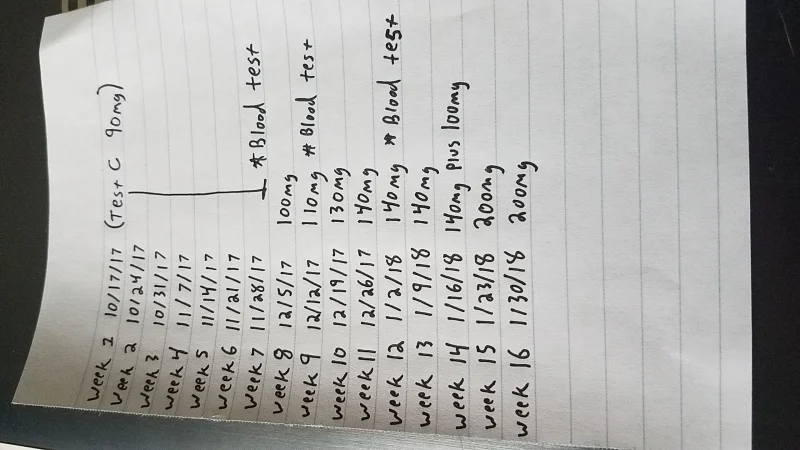 Week 1 10/17/17 (Test C 90mg)
Week 2 10/24/17
Week 3 10/31/17
Week 4 11/7/17
Week 5 11/14/17
Week 6 11/21/17
Week 7 11/28/17 * Blood test
Week 8 12/5/17 100mg
Week 9 12/12/17 110mg * Blood test
Week 10 12/19/17 130mg
Week 11 12/26/17 140mg
Week 12 1/2/18 140mg * Blood test
Week 13 1/9/18 140mg
Week 14 1/16/18 140mg plus 100mg
Week 15 1/23/18 200mg
Week 16 1/30/18 200mg